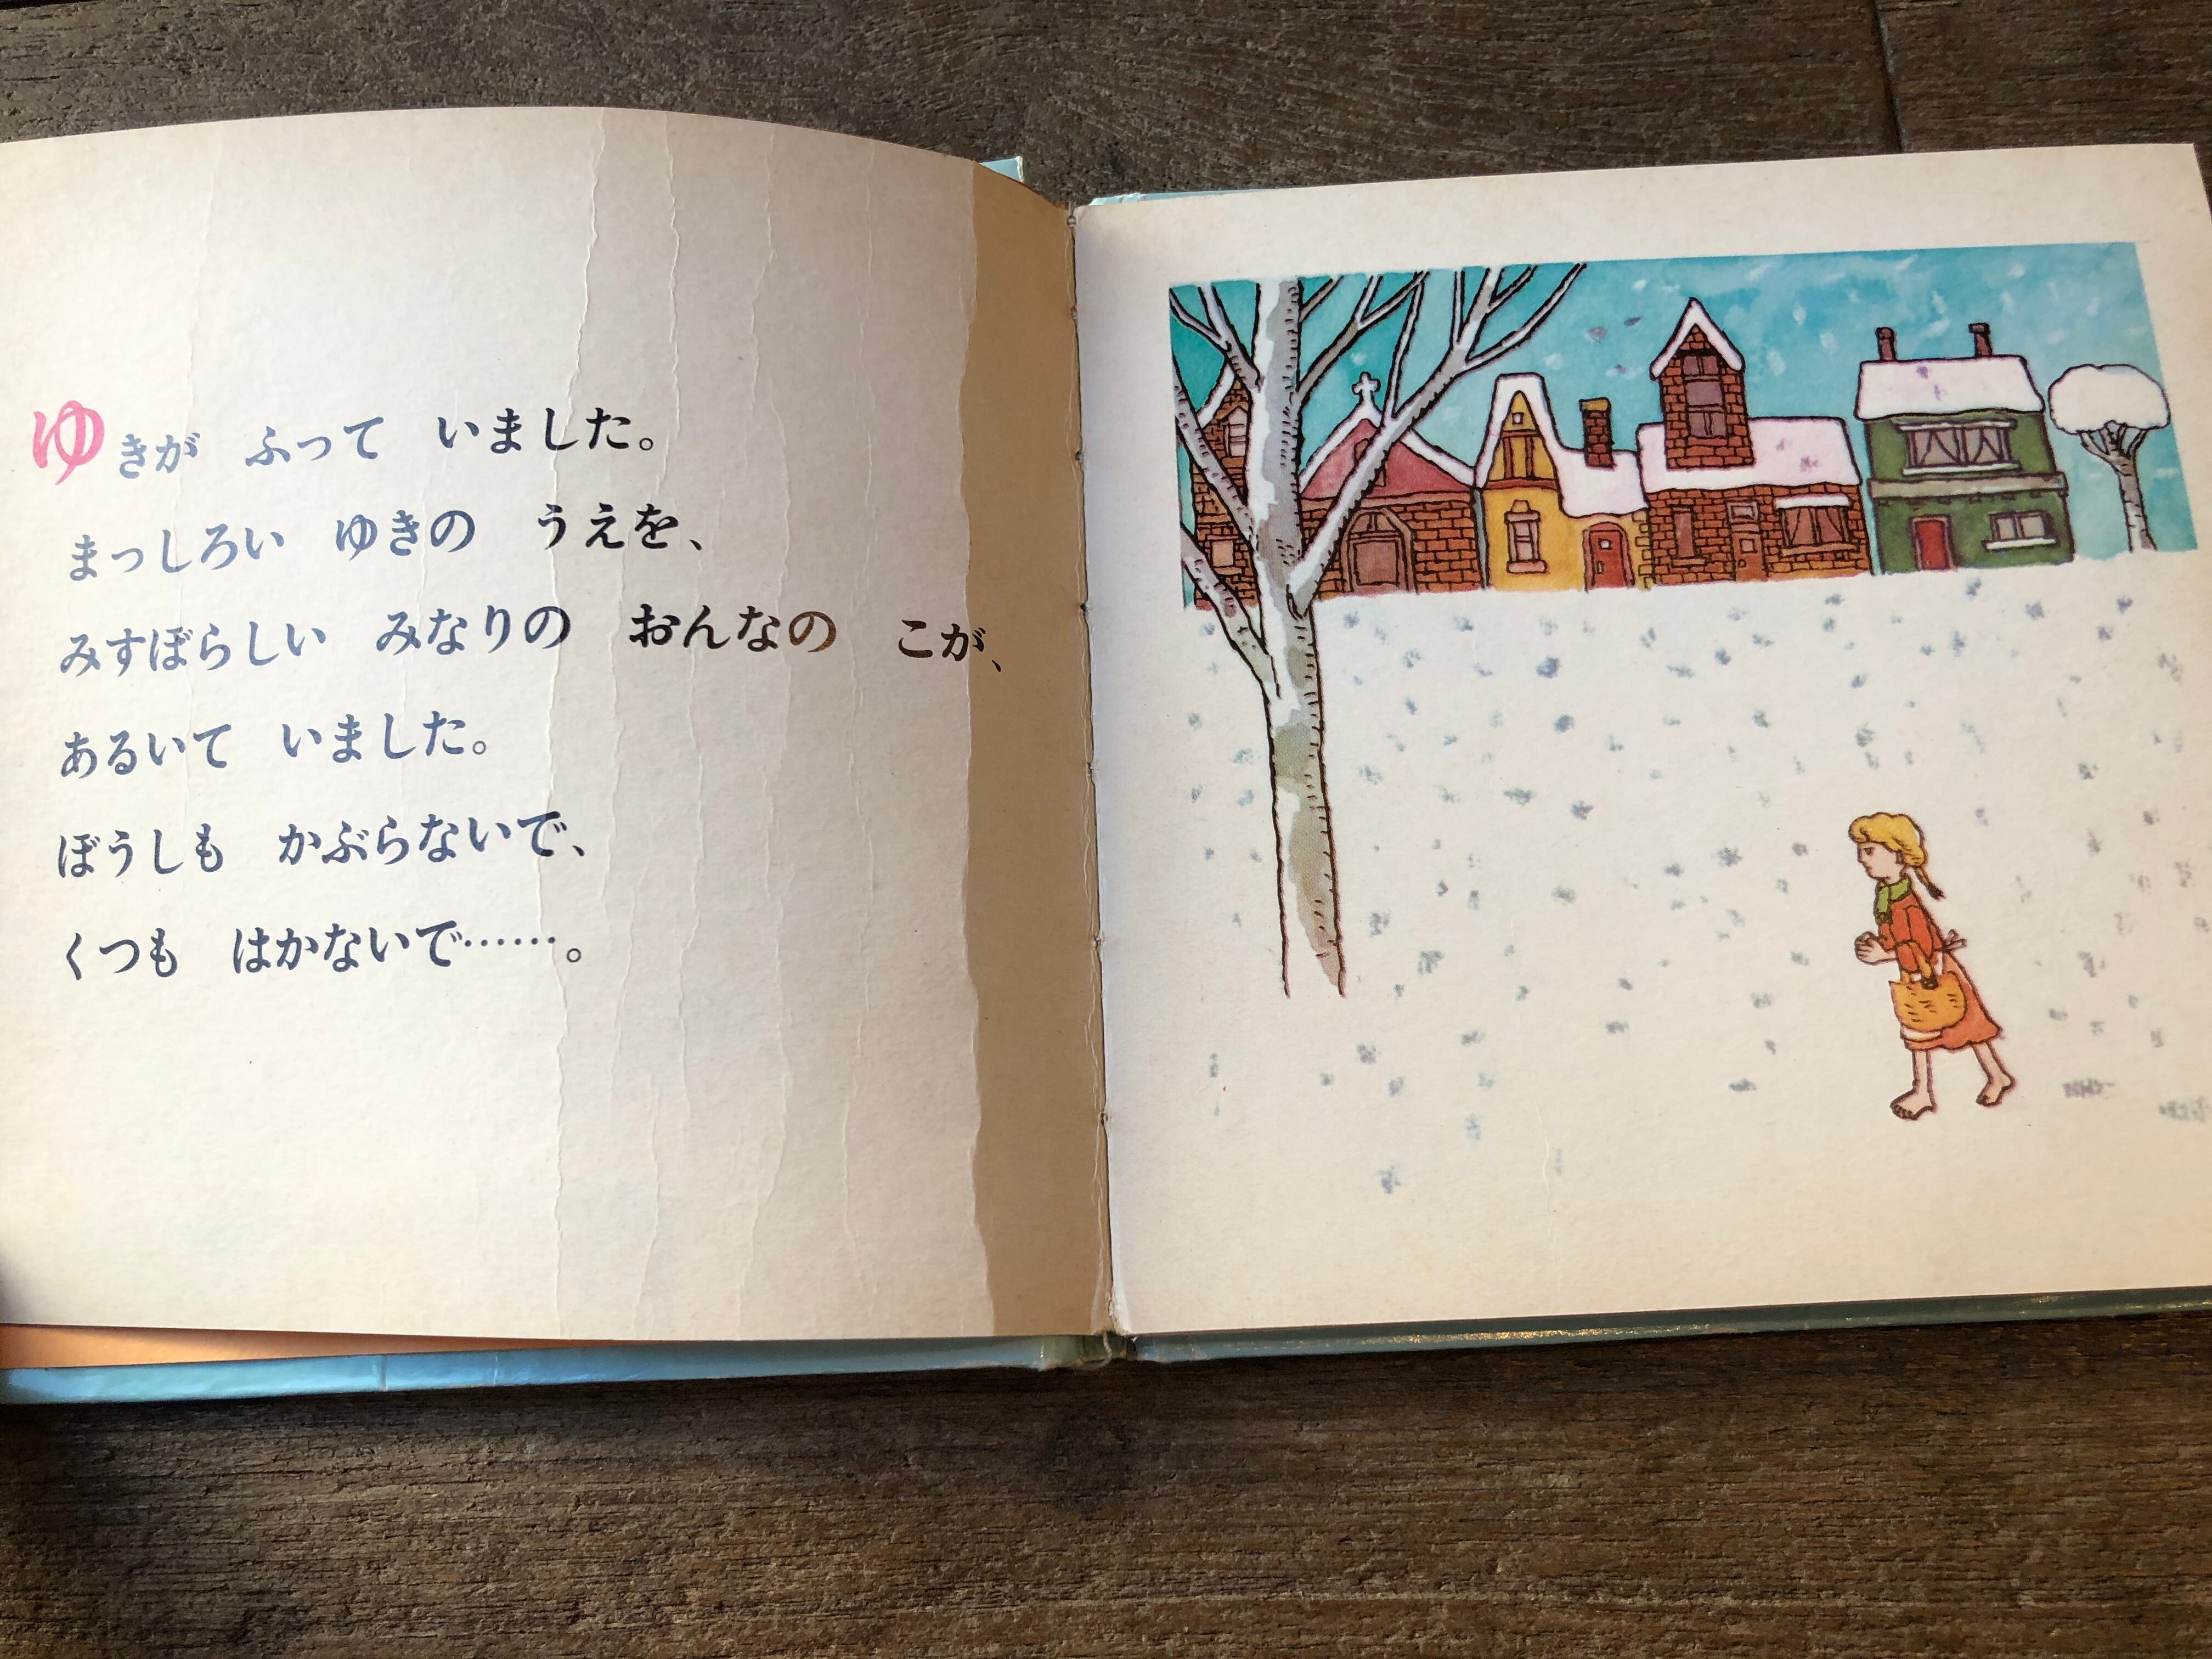 ゆきが　ふって　いました。
まっしろい　ゆきの　うえを、
みすぼらしい　みなりの　おんなの　こが、
あるいて　いました。
ぼうしも　かぶらないで、
くつも　はかないで……。